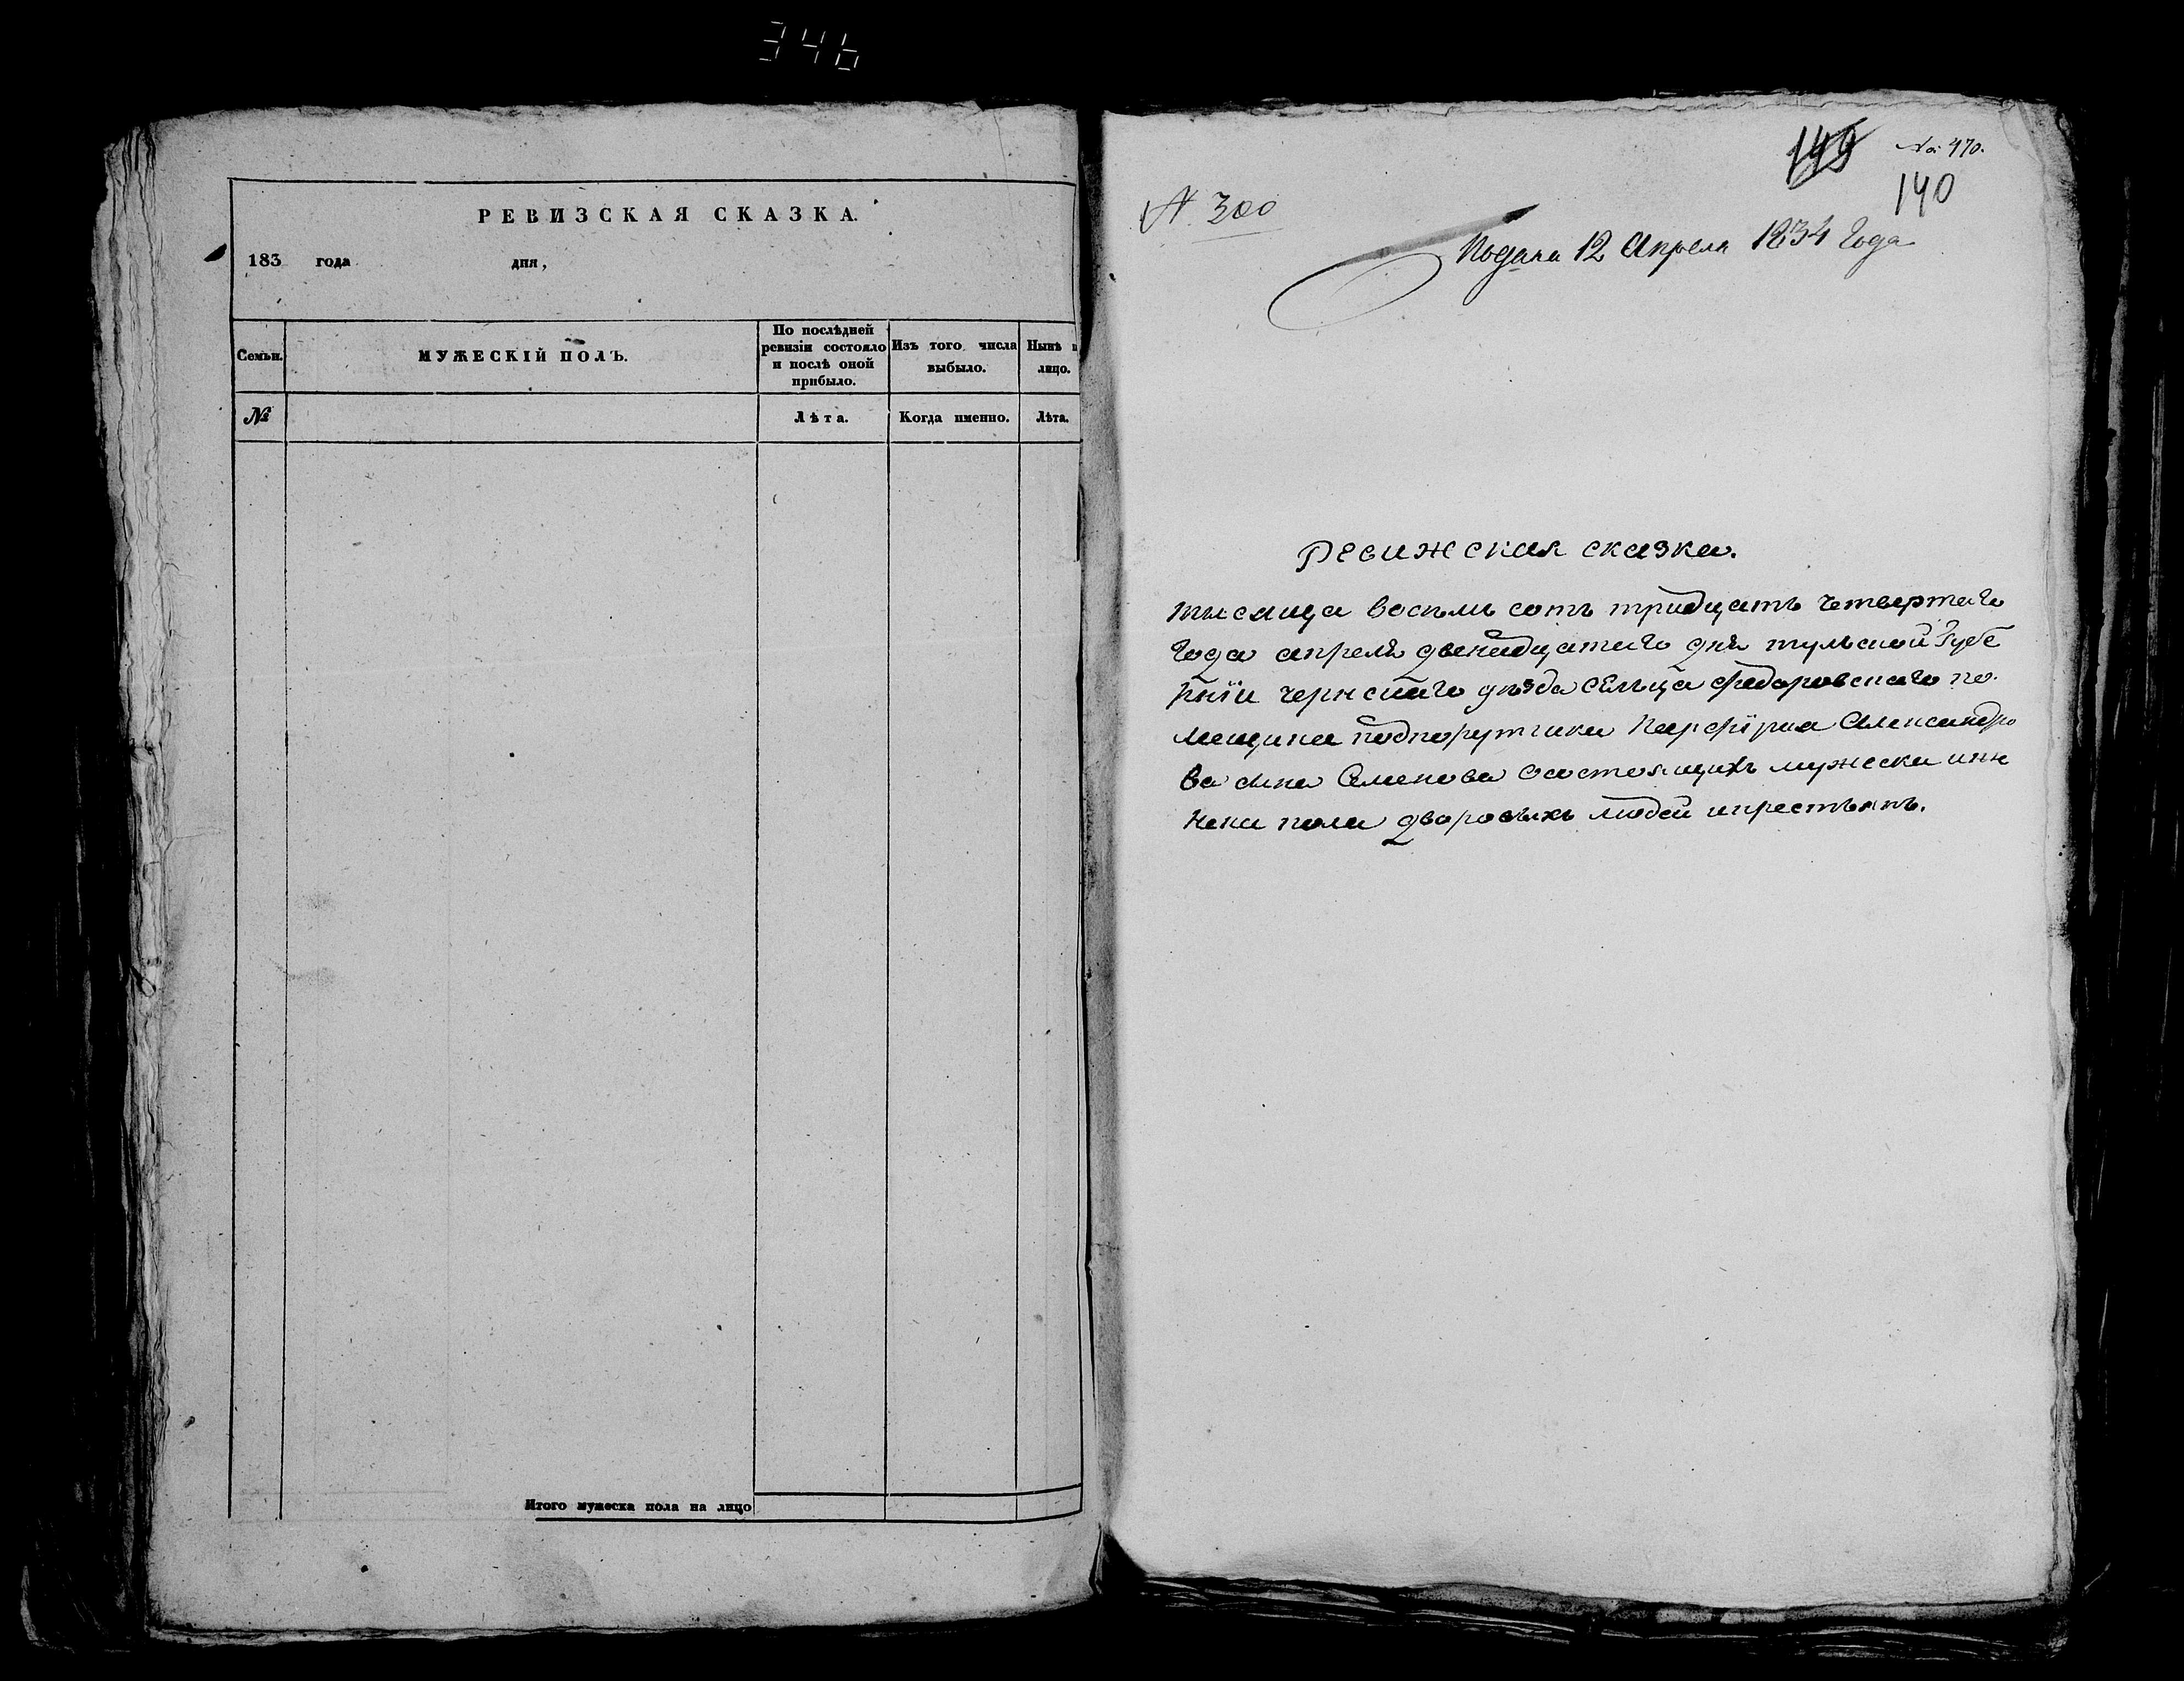 346
РЕВИЗСКАЯ СКАЗКА.
183 года дня,
Семьи.
МУЖЕСКІЙ ПОЛЪ.
По послѣдней
ревизіи состояло
и послѣ оной
прибыло.
Изъ того числа
выбыло.
Нынѣ н
лицо.
№
Лѣта.
Когда именно.
Лѣта.
Итого мужеска пола на лицо
149
№ 470.
140
№ 300
Подана 12 Апреля 1834 Года
Ревижская сказка.
тысяща восемь сотъ тридцать четвертаго
Года апреля двенадцатаго дня тульской Губе
рніи чернскаго уѣзда сельца федоровскаго по
мещика подпорутчика Парфірия Александро
ва сына Семенова состоящихъ мужеска иже
нска пола дворовыхъ людей икрестьянъ.